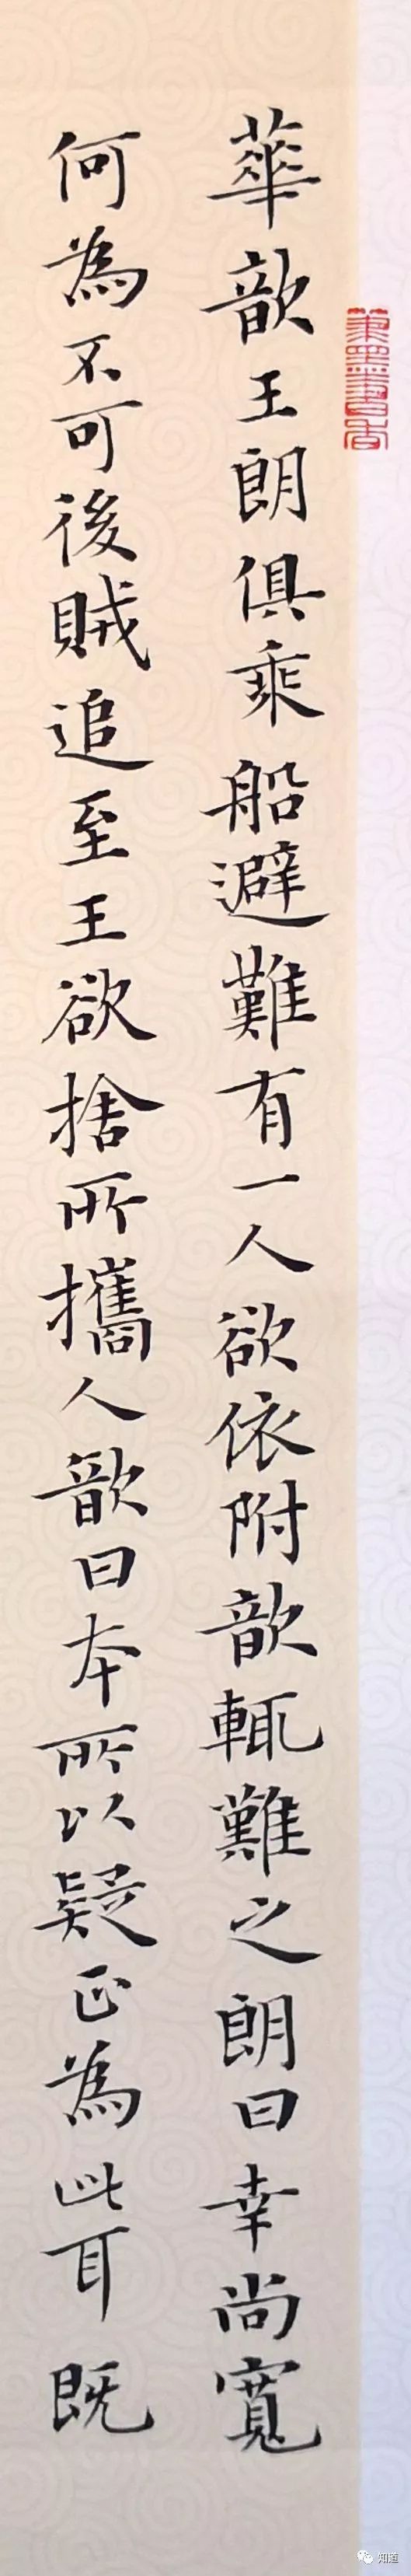 華歆王朗俱乘船避難有一人欲依附歆輒難之朗曰幸尚寬
何為不可後賊追至王欲捨所攜人歆曰本所以疑正為此耳既
知道